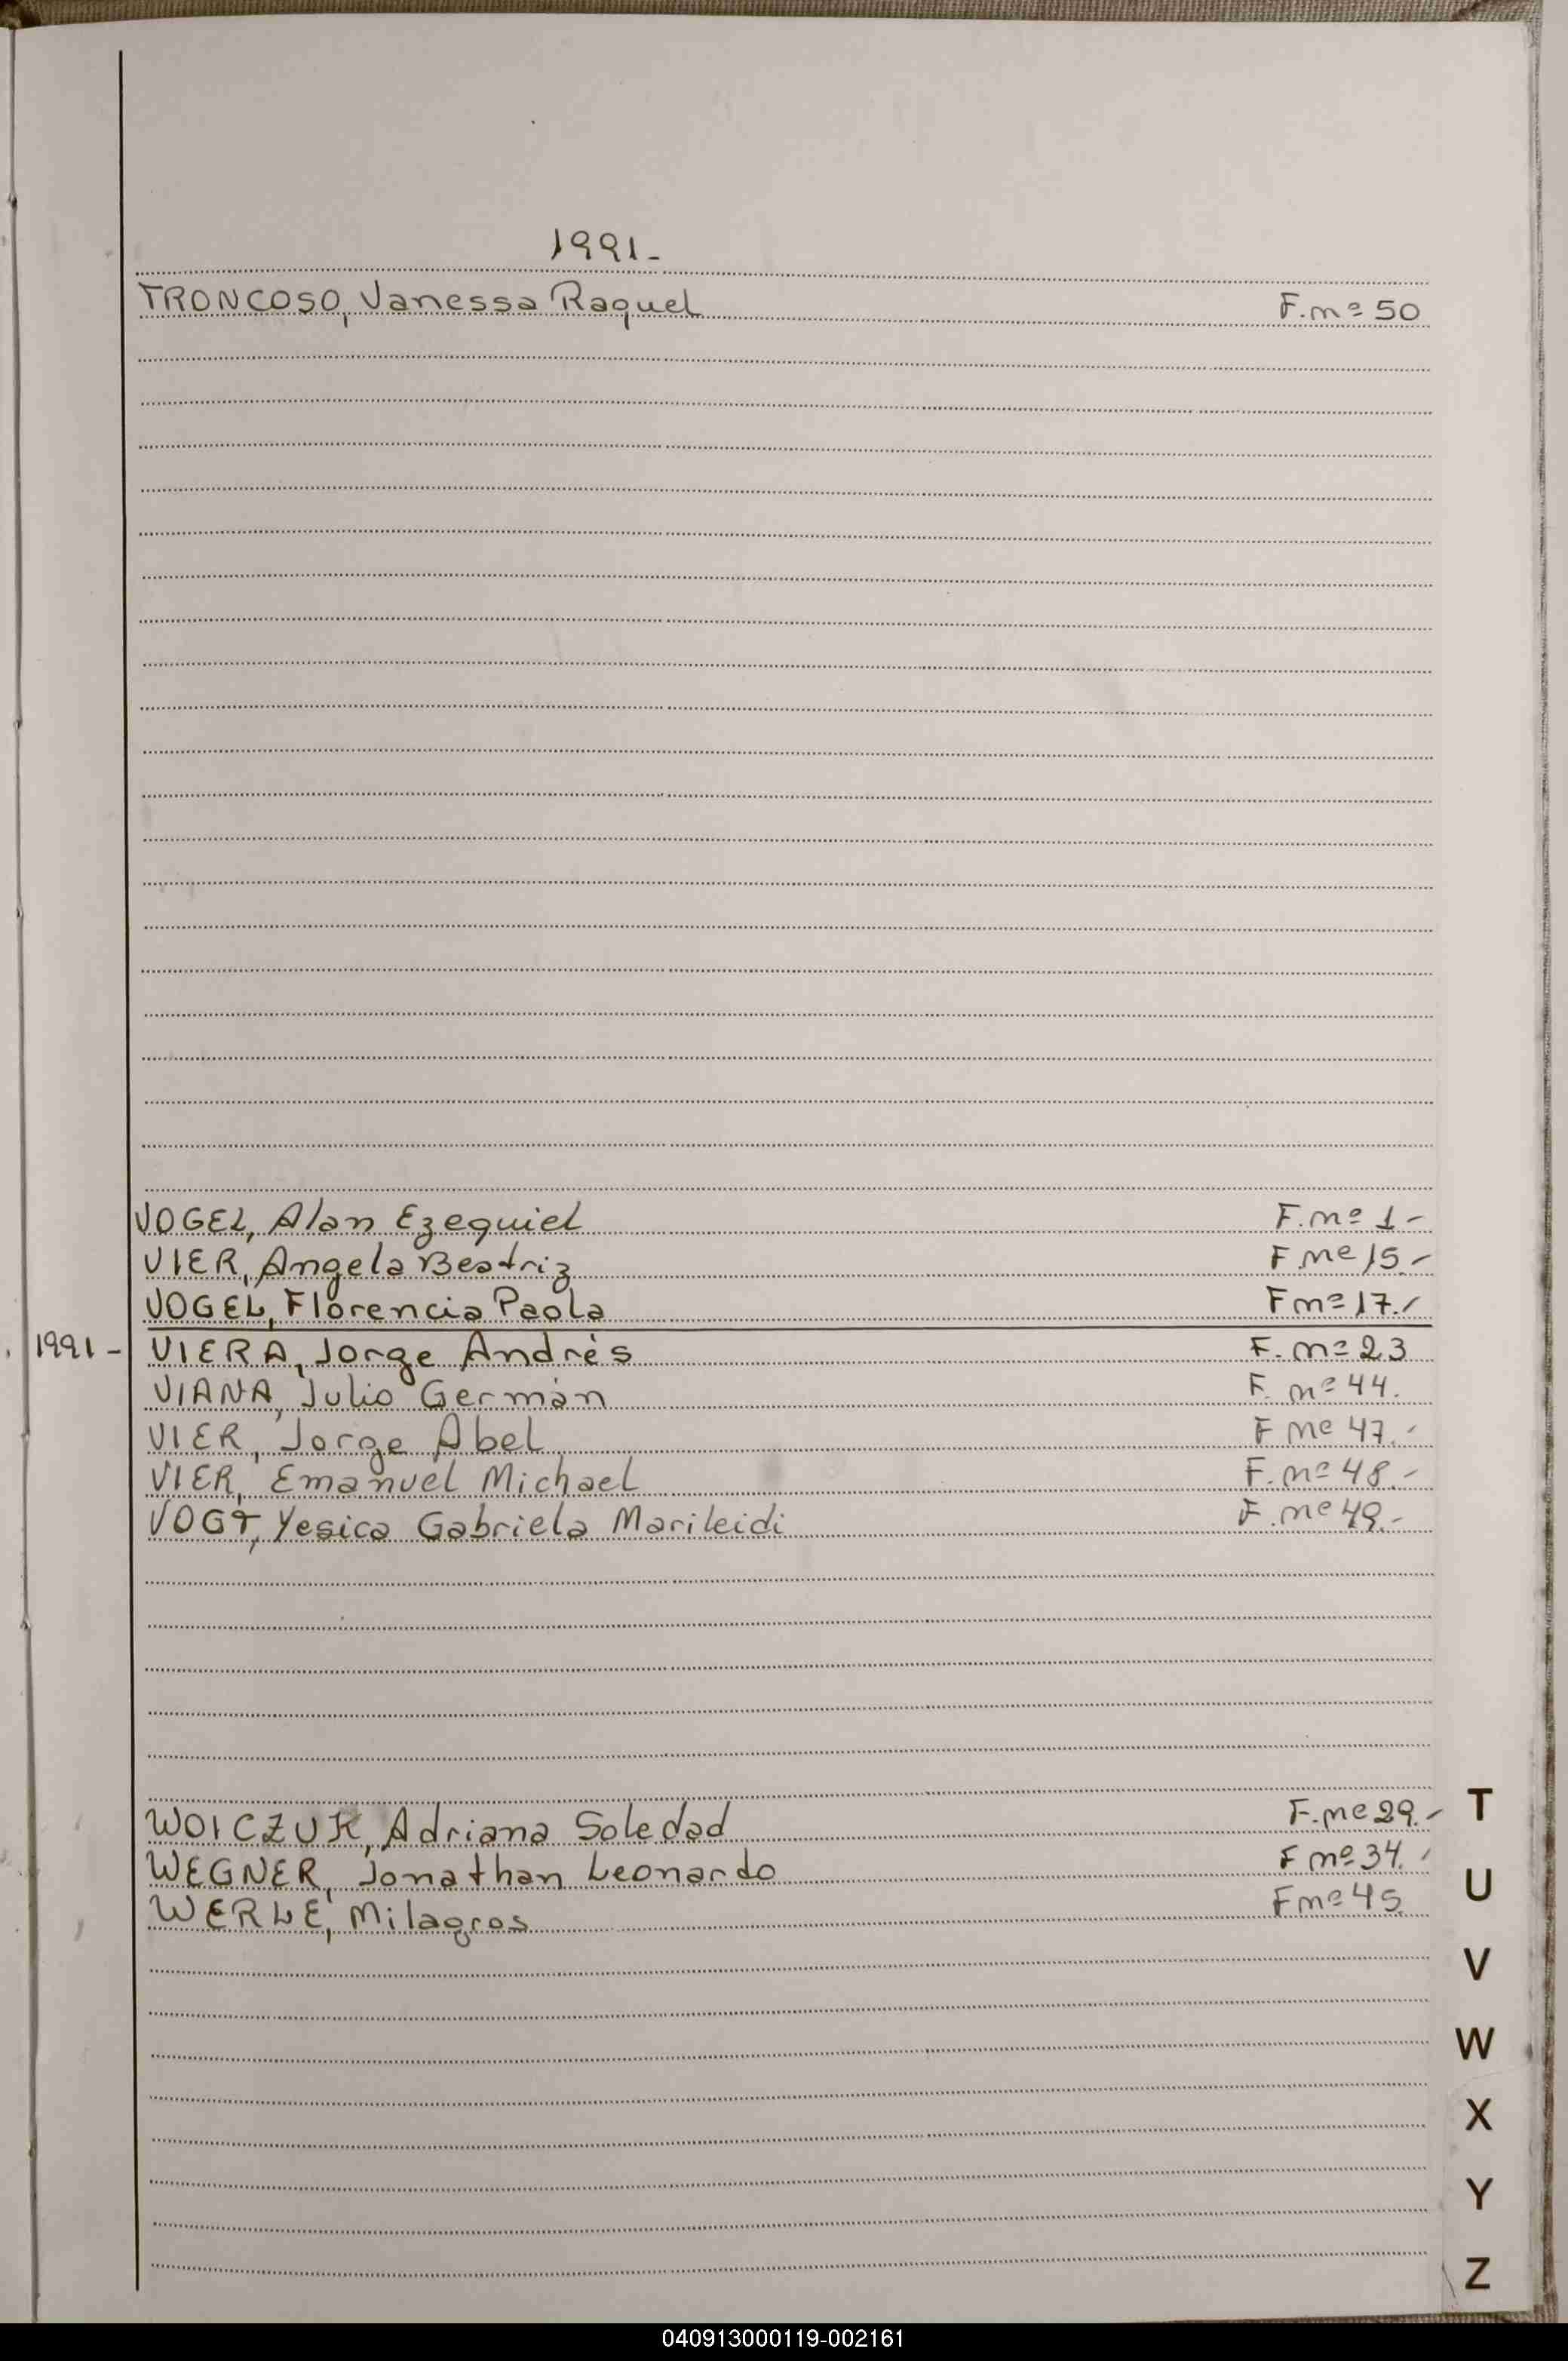 1991-
TRONCOSO, Vanessa Raquel F. nº 50
VOGEL, Alan Ezequiel F. nº 1-
VIER, Angela Beatriz F nº 15.-
VOGEL, Florencia Paola F nº 17.-
1991- VIERA, Jorge Andrés F. nº 23
VIANA, Julio Germán F. nº 44.
VIER, Jorge Abel F nº 47.-
VIER, Emanuel Michael F. nº 48.-
VOGT, Yesica Gabriela Marileidi F. nº 49.-
WOICZUK, Adriana Soledad F. nº 29.-
WEGNER, Jonathan Leonardo F nº 34.
WERLE, Milagros F nº 45.
T
U
V
W
X
Y
Z
040913000119-002161